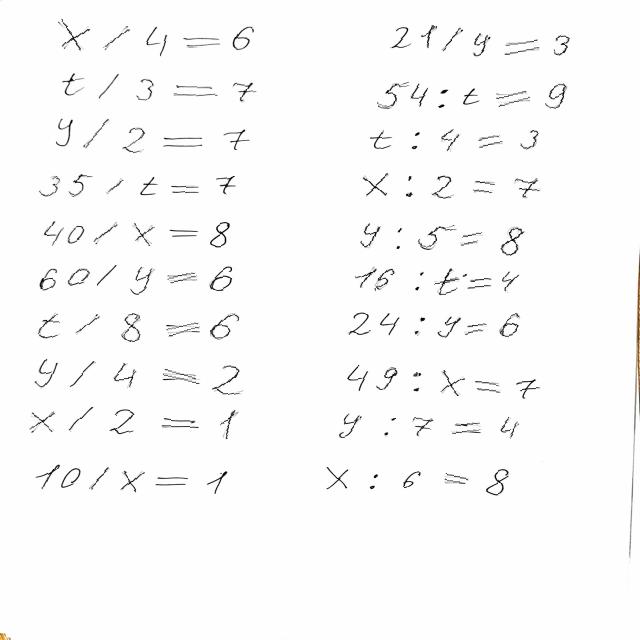 x / 4 = 6
t / 3 = 7
y / 2 = 7
35 / t = 7
40 / x = 8
60 / y = 6
t / 8 = 6
y / 4 = 2
x / 2 = 1
10 / x = 1
21 / y = 3
54 : t = 9
t : 4 = 3
x : 2 = 7
y : 5 = 8
16 : t = 4
24 : y = 6
49 : x = 7
y : 7 = 4
x : 6 = 8